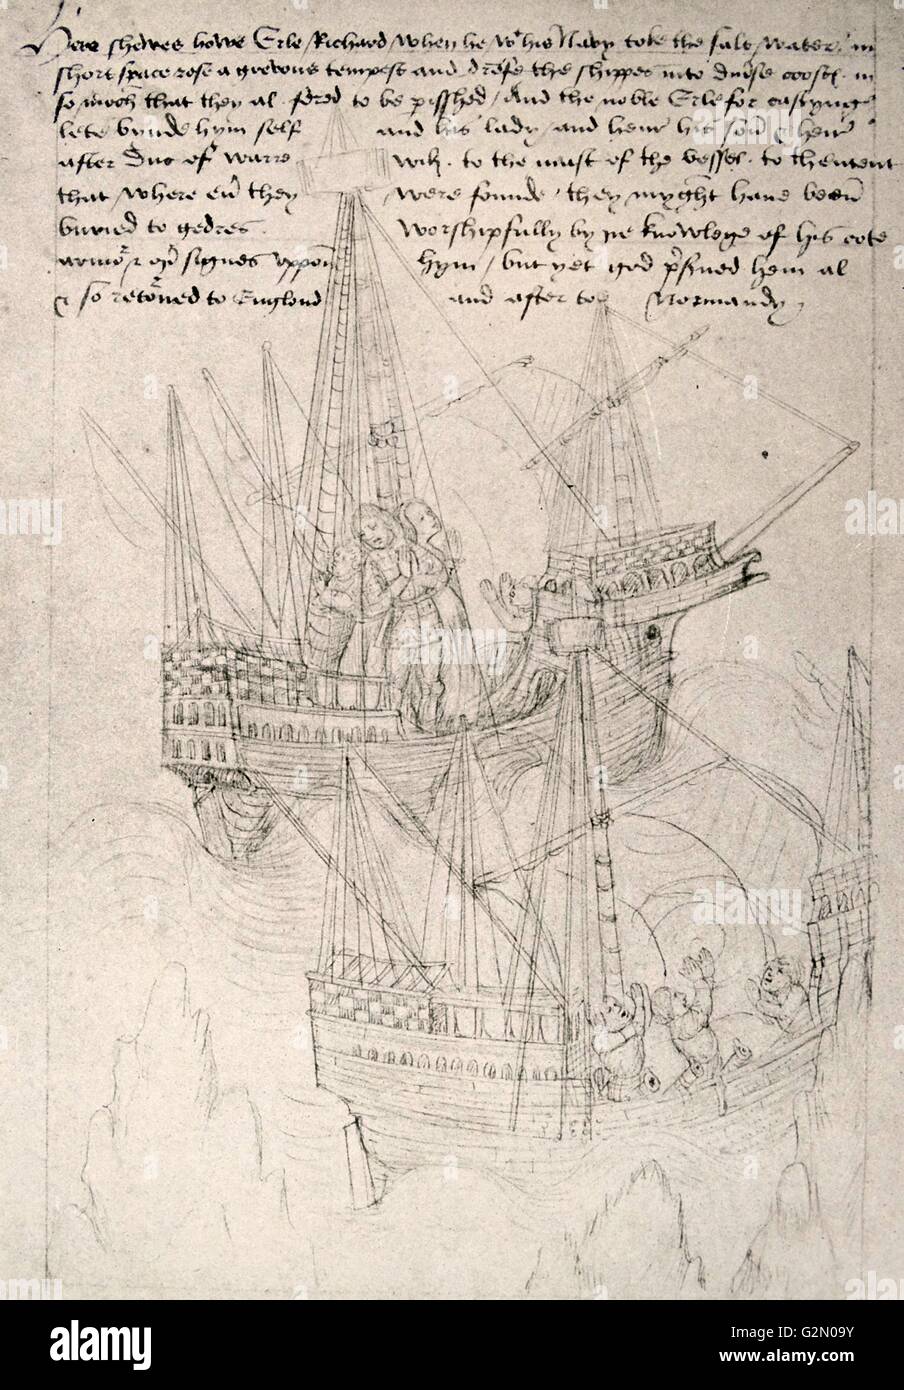 Here shewes howe Erle Richard when he wt his Navy toke the salt water in
short space rose a grevous tempest and drofe the shippes into diuse coostes in
so moch that they al fered to be pisshed / And the noble Erle for castyng
lete bynde hym self and his lady / and henr his son & heir
after Duc of Warre wik . to the mast of the vessel . to thentent
that where eu they were founde / they myght have been
buried to gedres worshipfully by ye knowlege of his cote
armor & or signes uppon hym / but yet god pserued hem al
& so retorned to Englond and after to Normandy
alamy stock photo
G2N09Y
www.alamy.com